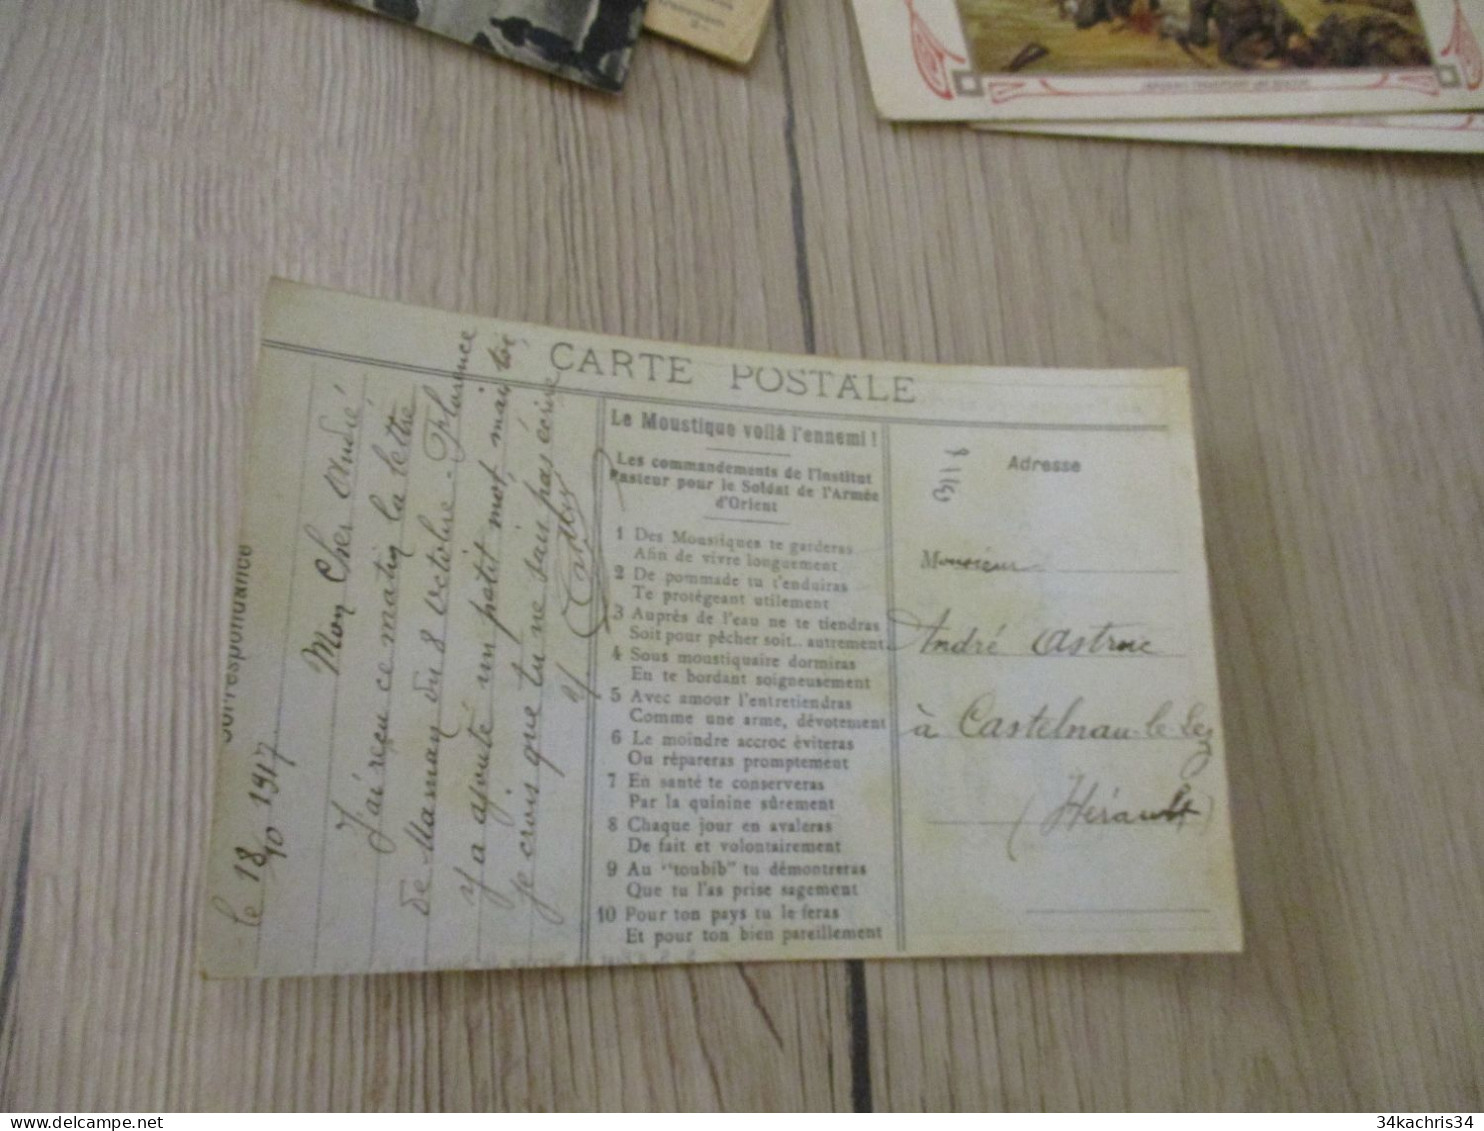 CARTE POSTALE
Correspondance
le 18/10 1917
Mon Cher André,
J'ai reçu ce matin la lettre
de Maman du 8 octobre. Florence
y a ajouté un petit mot, mais toi,
je crois que tu ne sais pas écrire
Le Moustique voilà l'ennemi !
Les commandements de l'Institut
Pasteur pour le Soldat de l'Armée
d'Orient
1 Des Moustiques te garderas
Afin de vivre longuement
2 De pommade tu t'enduiras
Te protégeant utilement
3 Auprès de l'eau ne te tiendras
Soit pour pêcher soit.. autrement
4 Sous moustiquaire dormiras
En te bordant soigneusement
5 Avec amour l'entretiendras
Comme une arme, dévotement
6 Le moindre accroc éviteras
Ou répareras promptement
7 En santé te conserveras
Par la quinine sûrement
8 Chaque jour en avaleras
De fait et volontairement
9 Au "toubib" tu démontreras
Que tu l'as prise sagement
10 Pour ton pays tu le feras
Et pour ton bien pareillement
Adresse
Monsieur
André Astruc
à Castelnau-le-Lez
(Hérault)
34kachris34